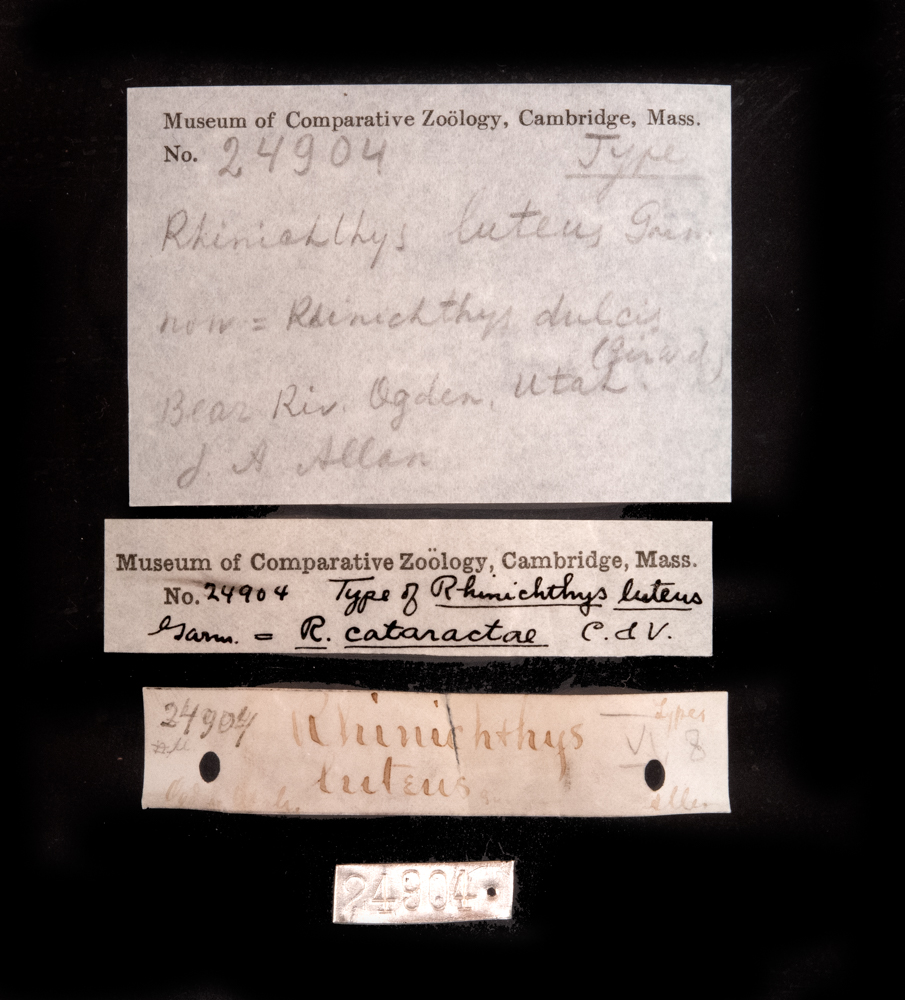 Museum of Comparative Zoölogy, Cambridge, Mass.
No. 24904 Type
Rhinichthys luteus Garm.
now = Rhinichthys dulcis
(Girard)
Bear Riv. Ogden, Utah.
J. A Allan
Museum of Comparative Zoölogy, Cambridge, Mass.
No. 24904 Type of Rhinichthys luteus
Garm. = R. cataractae C. & V.
24904 Rhinichthys Types
VI 8
luteus
Allen
24904